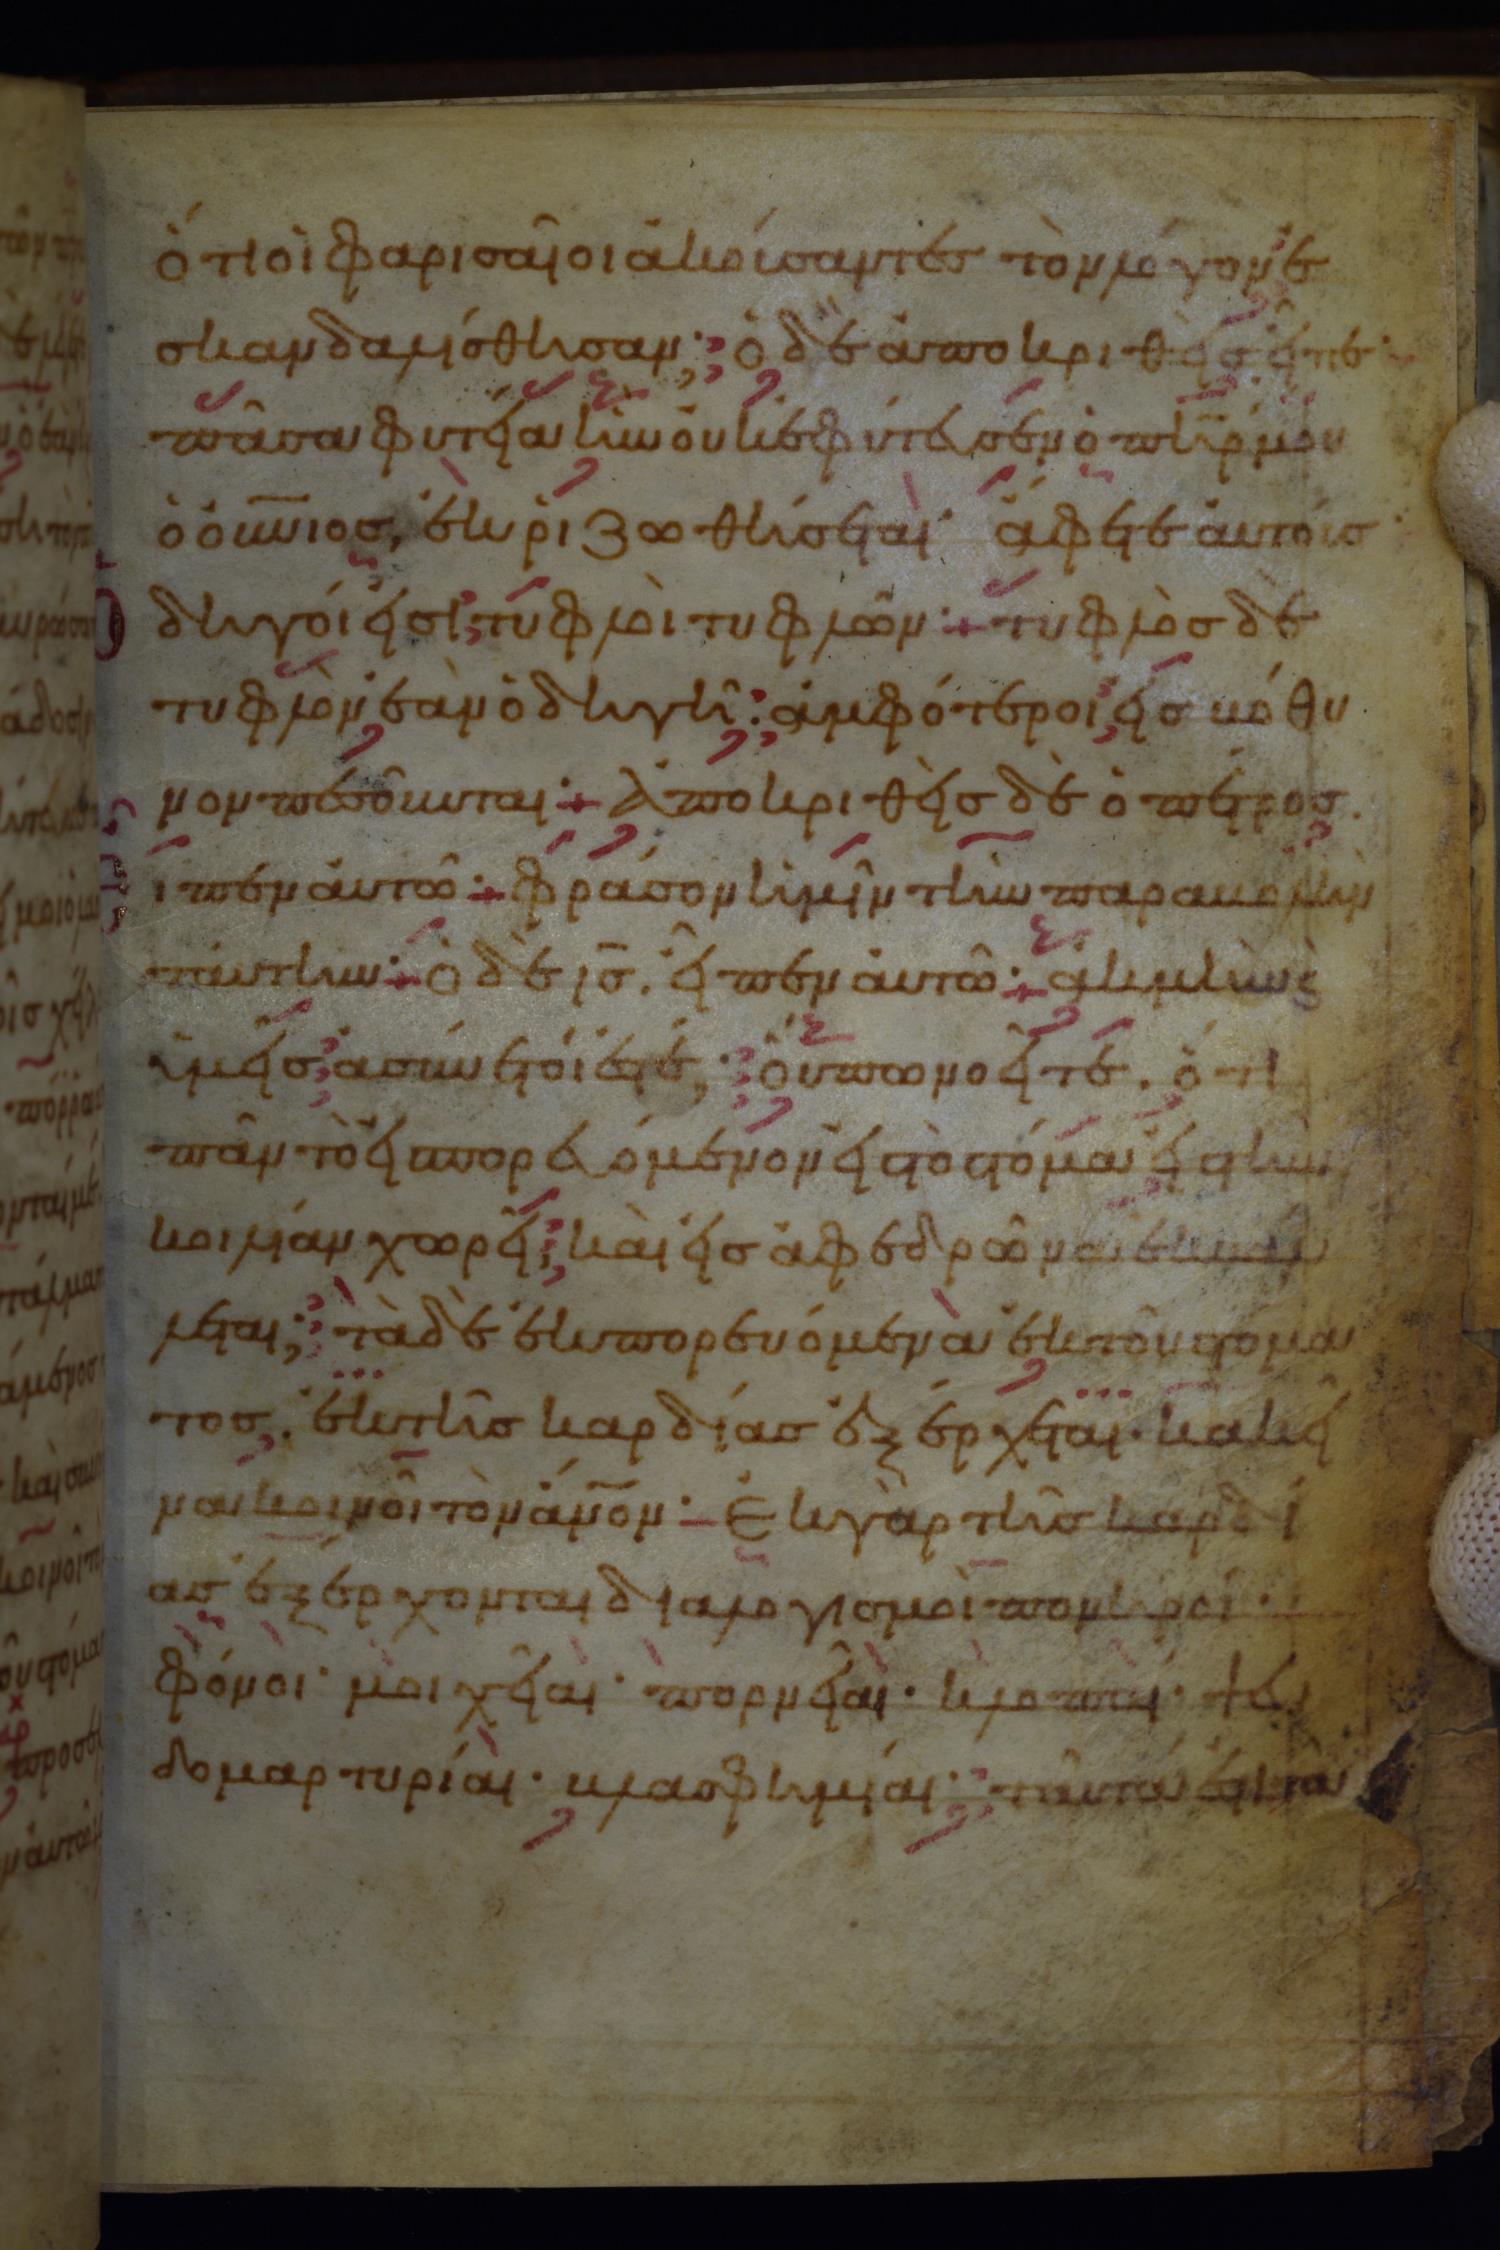 ὅτι οἱ φαρισαῖοι ἀκούσαντες τὸν λόγον ἐ
σκανδαλίσθησαν; ὁ δὲ ἀποκριθεὶς εἶπε·
πᾶσα φυτεία ἣν οὐκ ἐφύτευσεν ὁ π̅η̅ρ μου
ὁ ο̅υ̅νιος, ἐκριζωθήσεται· ἄφετε αὐτοίς
ὁδηγοί εἰσι τυφλοὶ τυφλῶν· + τυφλὸς δὲ
τυφλὸν ἐὰν ὁδηγῆ: ἀμφότεροι εἰς βόθυ
νον πεσοῦνται· + Ἀποκριθεὶς δὲ ὁ πέτρος.
εἶπεν αὐτῶ· + φράσον ἡμῖν τὴν παραβολὴν
ταύτην· + ὁ δὲ ι̅ς̅. εἶπεν αὐτῶ· + ἀκμὴν κ
ὑμεῖς ἀσύνετοί ἐστέ, · οὔπω νοεῖτε. ὅτι
πᾶν τὸ εἰσπορευόμενον εἰς τὸ στόμα εἰς τὴν
κοιλίαν χωρεῖ; καὶ εἰς ἀφεδρῶνα ἐκβάλ
λεται; τὰ δὲ ἐκπορευόμενα ἐκ τοῦ στόμα
τος. ἐκ τῆς καρδίας ἐξέρχεται· κακεῖ
να κοινοῖ τὸν α̅ν̅ο̅ν· Ἐκ γὰρ τῆς καρδί
ας ἐξέρχονται διαλογισμοὶ πονηροί·
φόνοι· μοιχεῖαι· πορνεῖαι· κλοπαί· ψευ
δομαρτυρίαι· βλασφημίαι· ταῦτά ἐστι τὰ